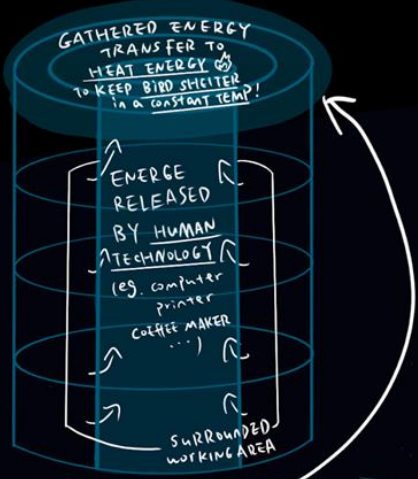 GATHERED ENERGY
TRANSFER TO
HEAT ENERGY
TO KEEP BIRD SHELTER
in a CONSTANT TEMP!
ENERGE
RELEASED
BY HUMAN
TECHNOLOGY
(eg. computer
printer
COFFEE MAKER
...)
SURROUNDED
WORKING AREA